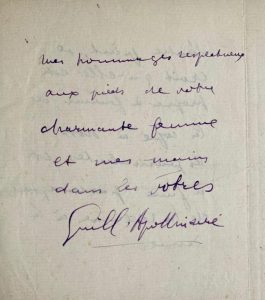 mes hommages respectueux
aux pieds de votre
charmante femme
et mes mains
dans les vôtres
Guill. Apollinaire